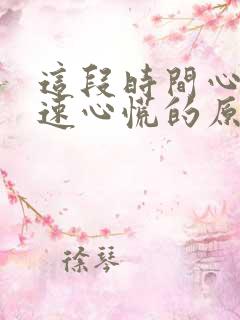 這段時間心
速心慌的原
徐琴